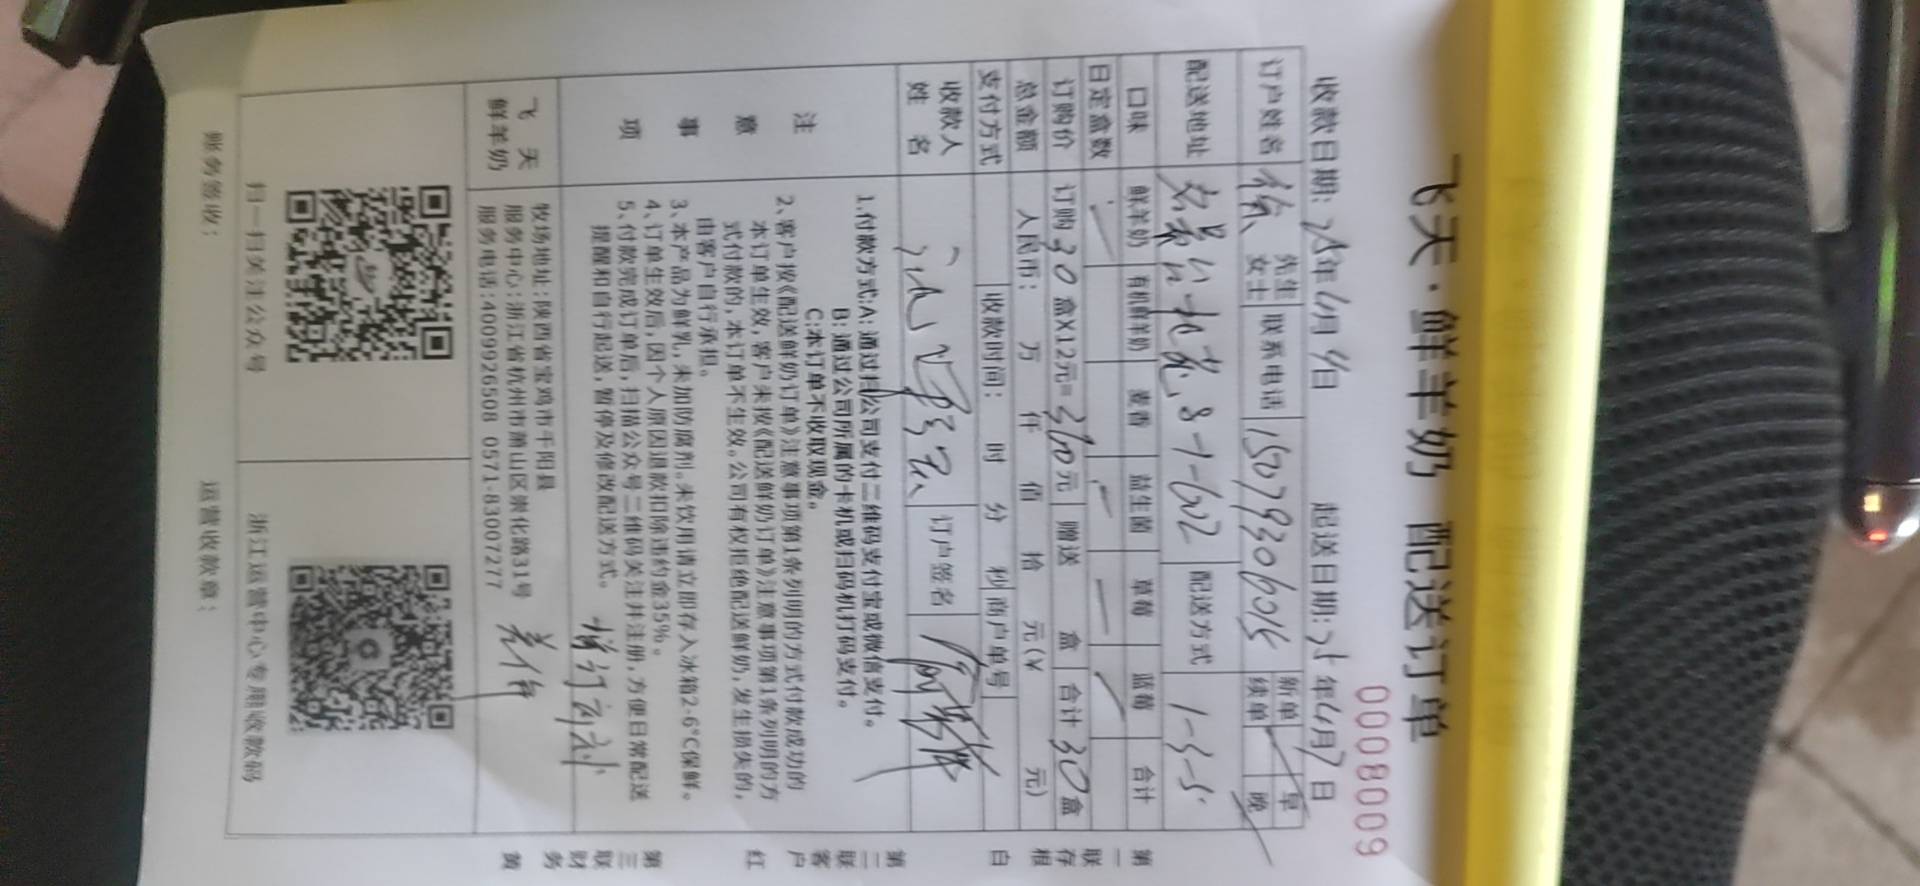 飞天·鲜羊奶 配送订单
0008009
收款日期: 年 月 日 起送日期: 年 月7日
订户姓名 徐 先生 女士 联系电话 新单 续单 早 晚
配送地址 8-1-602 配送方式 1-3-5
口味 鲜羊奶 有机鲜羊奶 麦香 益生菌 草莓 蓝莓 合计
日定盒数
订购价 订购30盒X12元=360元 赠送 盒 合计30盒
总金额 人民币: 万 仟 佰 拾 元(¥ 元)
支付方式 收款时间: 时 分 秒 商户单号
收款人姓名 订户签名
注意事项
1.付款方式:A: 通过扫公司支付二维码支付宝或微信支付。
B: 通过公司所属的卡机或扫码机打码支付。
C:本订单不收取现金。
2、客户按《配送鲜奶订单》注意事项第1条列明的方式付款成功的
本订单生效,客户未按《配送鲜奶订单》注意事项第1条列明的方
式付款的,本订单不生效。公司有权拒绝配送鲜奶,发生损失的,
由客户自行承担。
3、本产品为鲜乳,未加防腐剂。未饮用请立即存入冰箱2-6°C保鲜。
4、订单生效后,因个人原因退款扣除违约金35%。
5、付款完成订单后,扫描公众号二维码关注并注册,方便日常配送
提醒和自行起送,暂停及修改配送方式。
飞天鲜羊奶
牧场地址:陕西省宝鸡市千阳县
服务中心:浙江省杭州市萧山区崇化路31号
服务电话:4009926508 0571-83007277
扫一扫关注公众号
浙江运营中心专用收款码
账务签收: 运营收款章:
第一联存根 白
第二联客户 红
第三联财务 黄